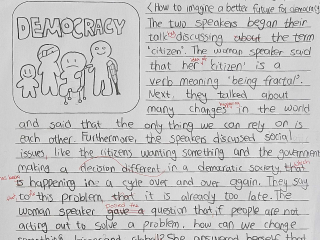 DEMOCRACY
<How to imagine a better future for democracy
The two speakers began their
talk discussing about the term
'citizen'. The woman speaker said
that 'citizen' is a
verb meaning 'being fractal'.
Next, they talked about
many changes in the world
and said that the only thing we can rely on is
each other. Furthermore, the speakers discussed social
issues, like the citizens wanting something and the government
making a decision different in a democratic society that
is happening in a cycle over and over again. They say
to this problem, that it is already too late. The
woman speaker gave a question that, if people are not
acting out to solve a problem, how can we change
She answered herself that